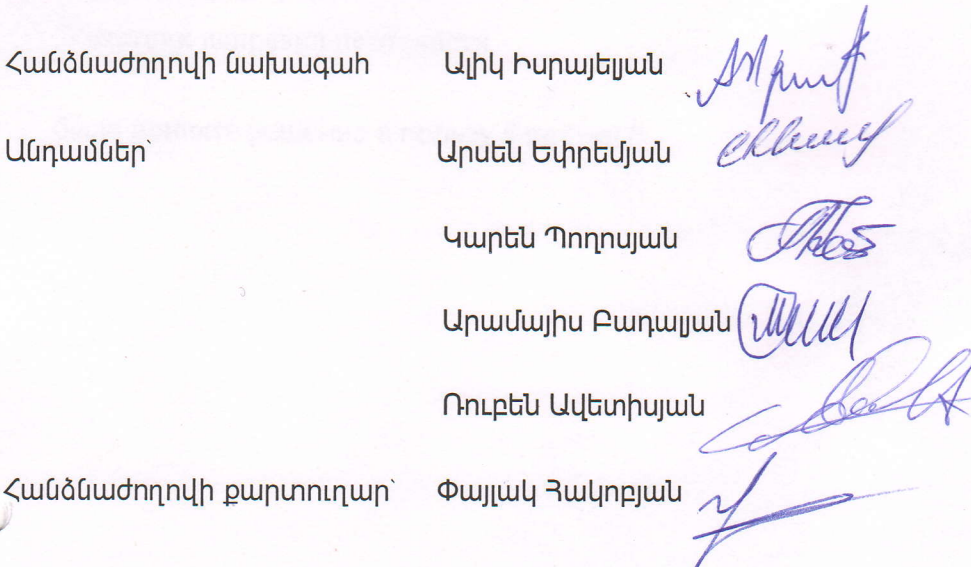 Հանձնաժողովի նախագահ Ալիկ Իսրայելյան
Անդամներ՝ Արսեն Եփրեմյան
Կարեն Պողոսյան
Արամայիս Բադալյան
Ռուբեն Ավետիսյան
Հանձնաժողովի քարտուղար՝ Փայլակ Հակոբյան